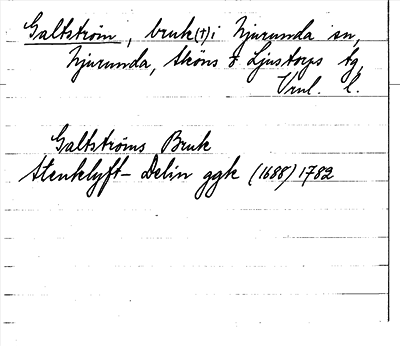 Galtström, bruk(†) i Njurunda sn,
Njurunda, Sköns & Ljustorps tg,
Vnl. l.
Galtströms Bruk
Stenklyft- Delin ggk (1688) 1782